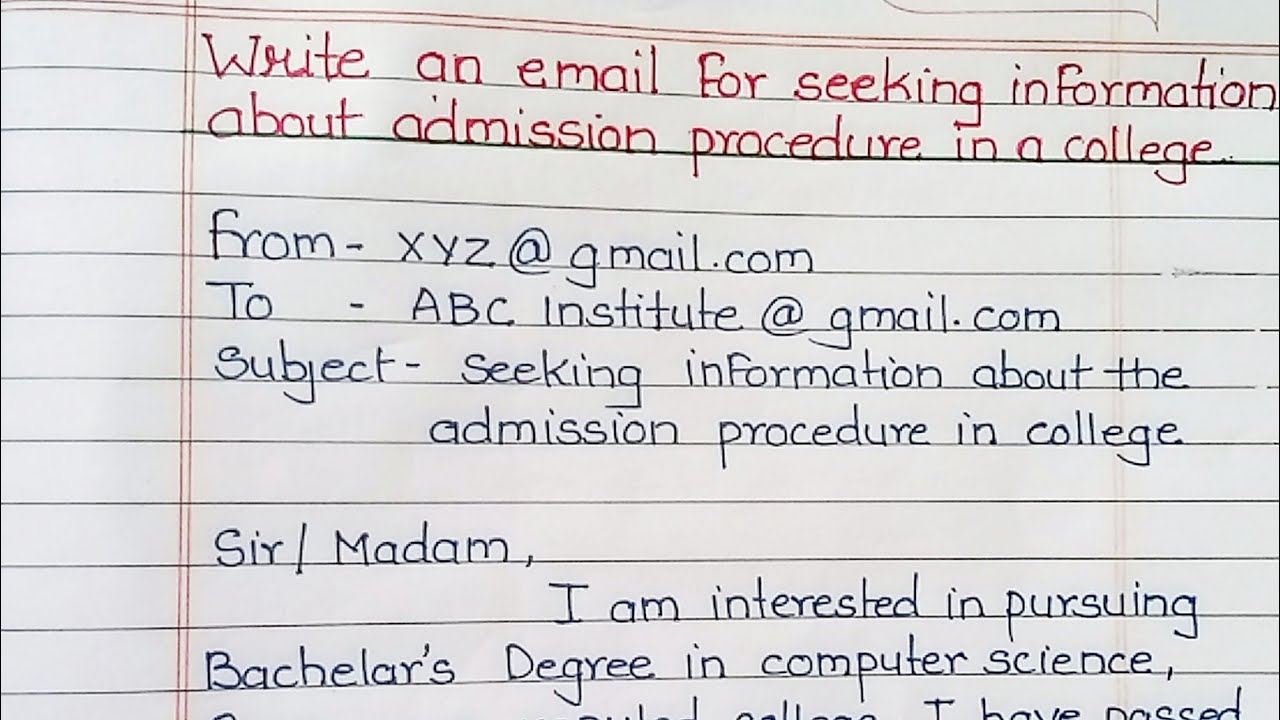 Write an email for seeking information
about admission procedure in a college.
From - XYZ @ gmail.com
To - ABC Institute @ gmail.com
Subject - Seeking information about the
admission procedure in college
Sir / Madam,
I am interested in pursuing
Bachelar's Degree in computer science,
college. I have passed